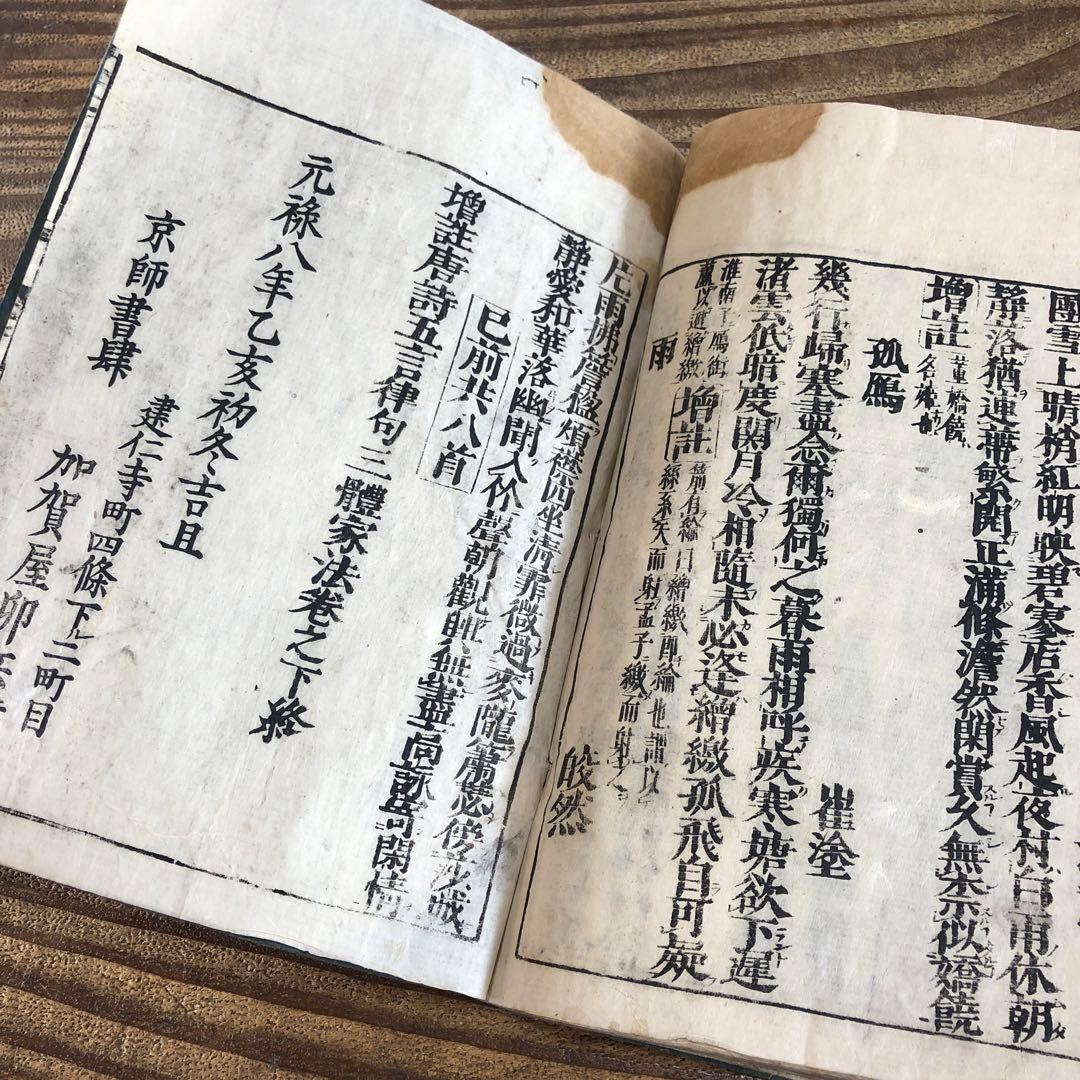 團雪上晴梢紅明映碧寥店香風起夜村白雨休朝
靜落猶連蔕繁開正滿條澹然閑賞久無以示似嬌饒
增註
孤鴈 崔塗
幾行歸塞盡念爾獨何之暮雨相呼疾寒塘欲下遲
渚雲低暗度關月冷相隨未必逢繒繳孤飛自可疑
增註
雨 皎然
片雨拂簷楹煩襟四坐清霏微過麥隴蕭瑟傍莎城
靜愛和華落幽聞入竹聲朝觀興無盡高詠寄閑情
已前共八首
增註唐詩五言律句三體家法卷之下終
元祿八年乙亥初冬吉旦
京師書肆
建仁寺町四條下ル二町目
加賀屋卯